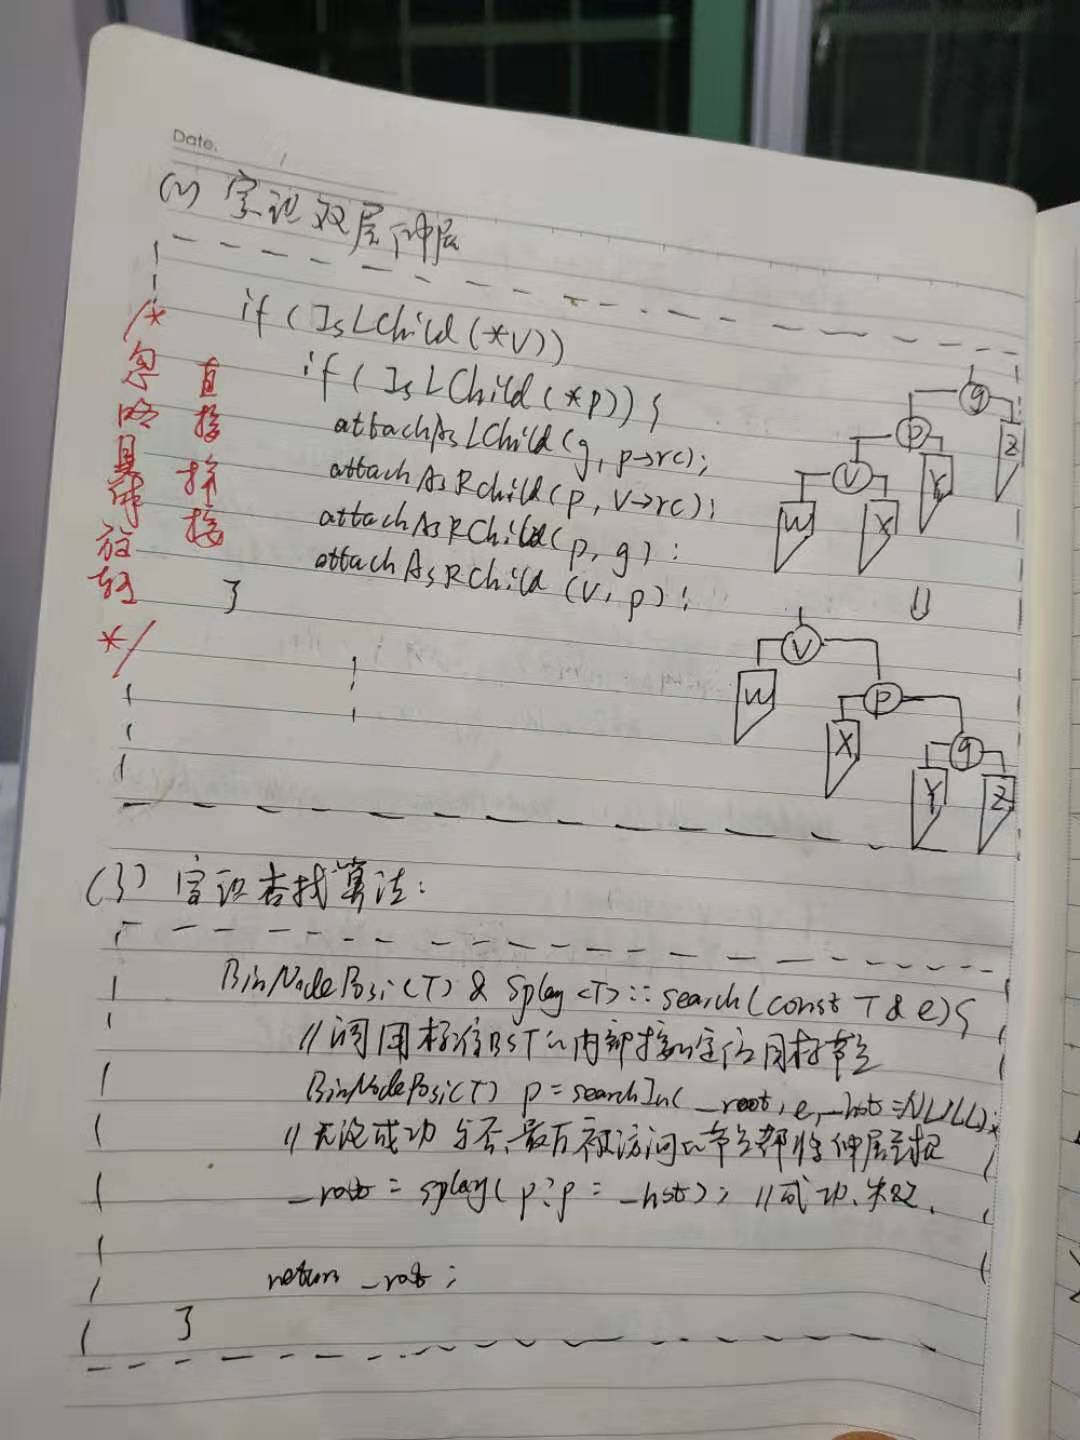 Date.
(2) 实现双层伸展
/* 忽略具体旋转 */
直接拼接
if (IsLChild(*v))
if (IsLChild(*p)) {
attachAsLChild(g, p→rc);
attachAsRChild(p, v→rc);
attachAsRChild(p, g);
attachAsRChild(v, p);
}
g
p
Z
v
Y
W
X
⇓
v
W
p
X
g
Y
Z
(3) 实现查找算法:
BinNodePosi(T) & Splay<T>::search(const T & e) {
//调用标准BST的内部接口定位目标节点
BinNodePosi(T) p = searchIn(_root, e, _hot = NULL);
//无论成功与否,最后被访问的节点都将伸展至根
_root = splay(p ? p = _hot); //成功、失败.
return _root;
}